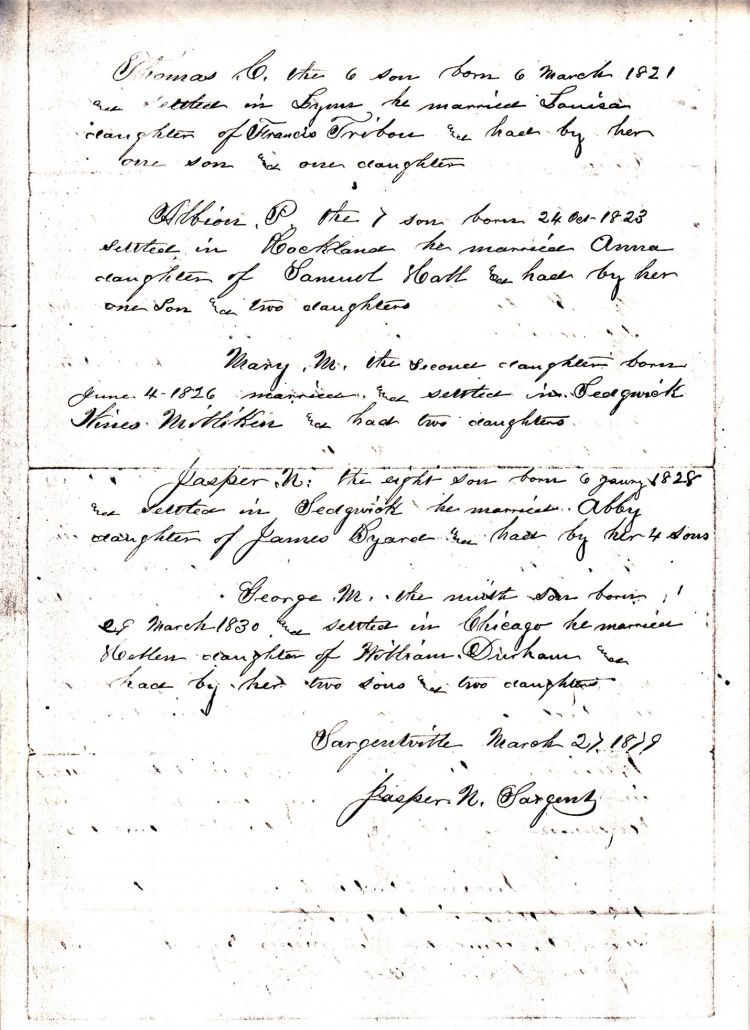 Thomas C. the 6 son born 6 March 1821
& settled in Lynn he married Louisa
daughter of Francis Tribou & had by her
one son & one daughter
Albion P. the 7 son born 24 Oct-1823
settled in Rockland he married Anna
daughter of Samuel Hall & had by her
one Son & two daughters
Mary M. the second daughter born
June 4-1826 married & settled in Sedgwick
Hines Milliken & had two daughters
Jasper N. the eight son born 6 Janry 1828
& settled in Sedgwick he married Abby
daughter of James Byard & had by her 4 sons
George M. the ninth son born
29 March 1830 & settled in Chicago he married
Hellen daughter of William Durham &
had by her two sons & two daughters
Sargentville March 27, 1879
Jasper N. Sargent